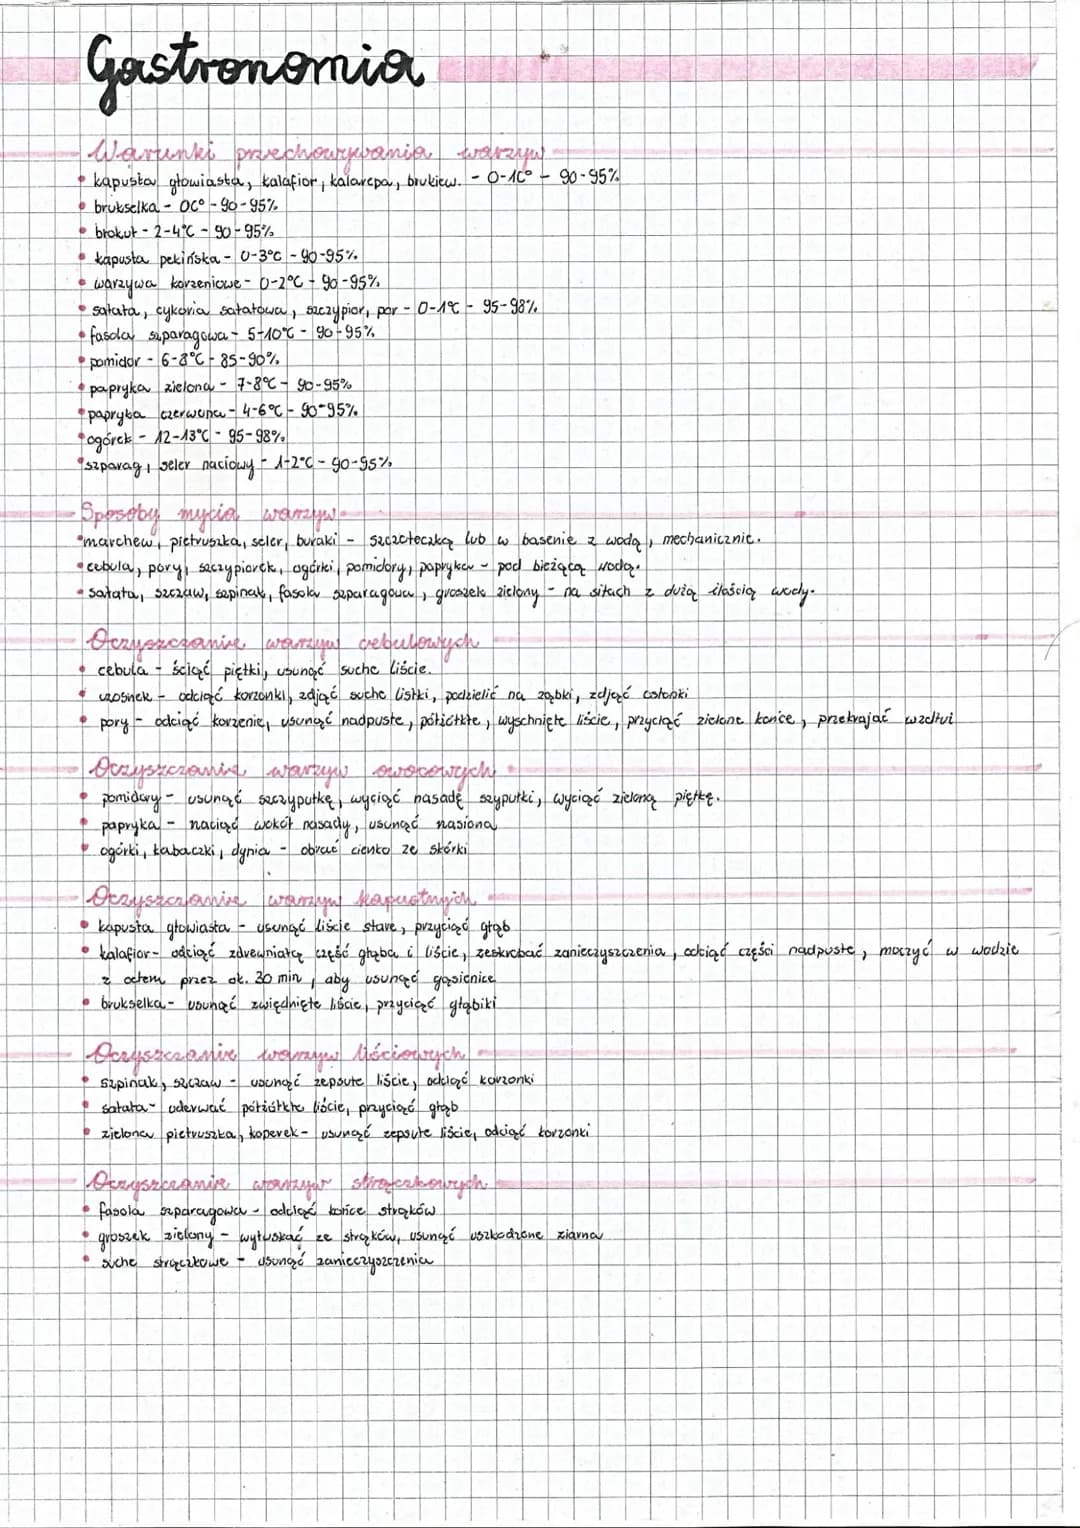 Gastronomia
Warunki przechowywania warzyw
• kapusta głowiasta, kalafior, kalarepa, brukiew. - 0-1C° - 90-95%
• brukselka - 0C° - 90-95%
• brokuł - 2-4°C - 90-95%
• kapusta pekińska - 0-3°C - 90-95%.
• warzywa korzeniowe - 0-2°C - 90-95%.
• sałata, cykoria sałatowa, szczypior, por - 0-1°C - 95-98%.
• fasola szparagowa - 5-10°C - 90-95%
• pomidor - 6-8°C - 85-90%.
• papryka zielona - 7-8°C - 90-95%
• papryka czerwona - 4-6°C - 90-95%.
• ogórek - 12-13°C - 95-98%.
• szparag, seler naciowy - 1-2°C - 90-95%.
Sposoby mycia warzyw
• marchew, pietruszka, seler, buraki - szczoteczką lub w basenie z wodą, mechanicznie.
• cebula, pory, szczypiorek, ogórki, pomidory, papryka - pod bieżącą wodą.
• sałata, szczaw, szpinak, fasola szparagowa, groszek zielony - na sitach z dużą ilością wody.
Oczyszczanie warzyw cebulowych
• cebula - ściąć piętki, usunąć suche liście.
• czosnek - odciąć korzonki, zdjąć suche listki, podzielić na ząbki, zdjąć osłonki
• pory - odciąć korzenie, usunąć nadpsute, pożółkłe, wyschnięte liście, przyciąć zielone końce, przekrajać wzdłuż
Oczyszczanie warzyw owocowych
• pomidory - usunąć szczypułkę, wyciąć nasadę szypułki, wyciąć zieloną piętkę.
• papryka - naciąć wokół nasady, usunąć nasiona
• ogórki, kabaczki, dynia - obrać cienko ze skórki
Oczyszczanie warzyw kapustnych
• kapusta głowiasta - usunąć liście stare, przyciąć głąb
• kalafior - odciąć zdrewniałą część głąba i liście, zeskrobać zanieczyszczenia, odciąć części nadpsute, moczyć w wodzie
z octem przez ok. 30 min, aby usunąć gąsienice
• brukselka - usunąć zwiędnięte liście, przyciąć głąbiki
Oczyszczanie warzyw liściowych
• szpinak, szczaw - usunąć zepsute liście, odciąć korzonki
• sałata - oderwać pożółkłe liście, przyciąć głąb
• zielona pietruszka, koperek - usunąć zepsute liście, odciąć korzonki
Oczyszczanie warzyw strączkowych
• fasola szparagowa - odciąć końce strąków
• groszek zielony - wyłuskać ze strąków, usunąć uszkodzone ziarna
• suche strączkowe - usunąć zanieczyszczenia